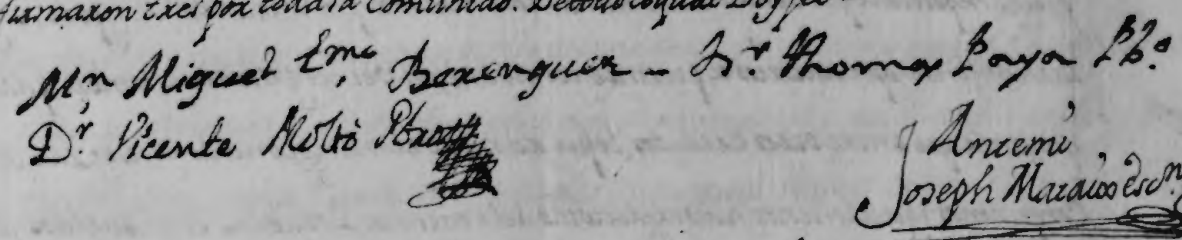 firmaron tres por toda la Comunidad. De todo lo qual Doy fee
Mn. Miguel Berenguer - Dr. Thomas Paya Pb.o
Dr. Vicente Moltó Pbro
Antemi
Joseph Mataix Esn.